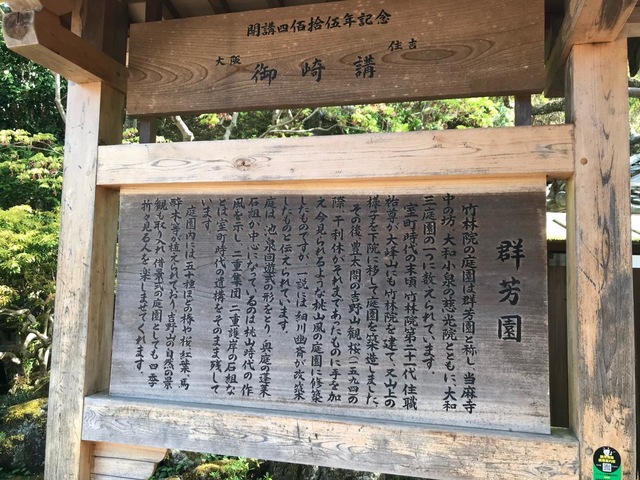 開講四佰拾伍年記念
大阪 御崎講 住吉
群芳園
竹林院の庭園は群芳園と称し、当麻寺
中の坊、大和小泉の慈光院とともに、大和
三庭園の一つに数えられています。
室町時代の末頃、竹林院第二十一代住職
祐尊が大峰山にも竹林院を建て、又山上の
様子を下院に移して庭園を築造しました。
その後豊太閤の吉野山観桜(一五九四)の
際、千利休がそれまであったものに手を加
え今見られるような桃山風の庭園に修築
したものですが、一説には細川幽斎が改築
したものと伝えられています。
庭は、池泉回遊式の形をとり、奥庭の蓬莱
石組が中心になっているのは桃山時代の作
風を示し、二重築園、二重護岸の石組な
どは室町時代の遺構をそのまま残して
います。
庭園内には五十種ほどの椿や桜、紅葉、馬
酔木等が植えられており、吉野山の自然の景
観も取り入れ、借景式の庭園としても四季
折々見る人を楽しませてくれます。